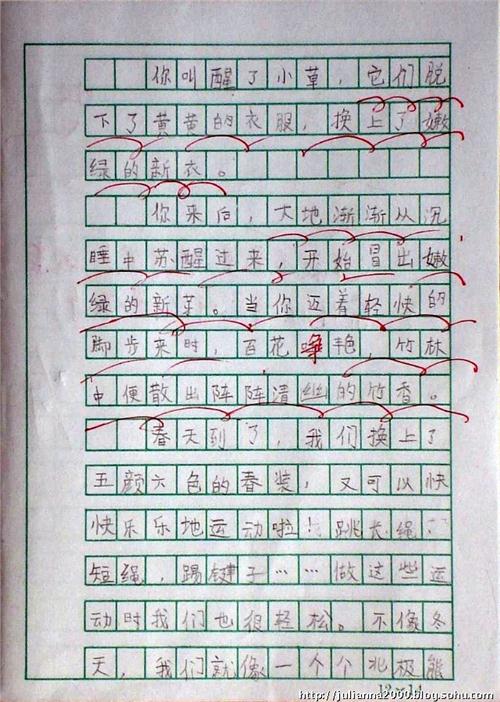 你叫醒了小草，它们脱
下了黄黄的衣服，换上了嫩
绿的新衣。
你来后，大地渐渐从沉
睡中苏醒过来，开始冒出嫩
绿的新芽。当你迈着轻快的
脚步来时，百花争艳，竹林
中便散出阵阵清幽的竹香。
春天到了，我们换上了
五颜六色的春装，又可以快
快乐乐地运动啦！跳长绳、
短绳，踢毽子……做这些运
动时我们也很轻松。不像冬
天，我们就像一个个北极熊
http://julianna2000.blog.sohu.com